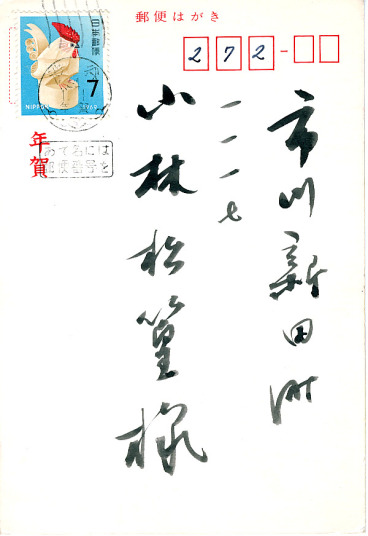 郵便はがき
272-
日本郵便
7
NIPPON 1969
年賀
あて名には
郵便番号を
市川新田町
一一一七
小林松篁様